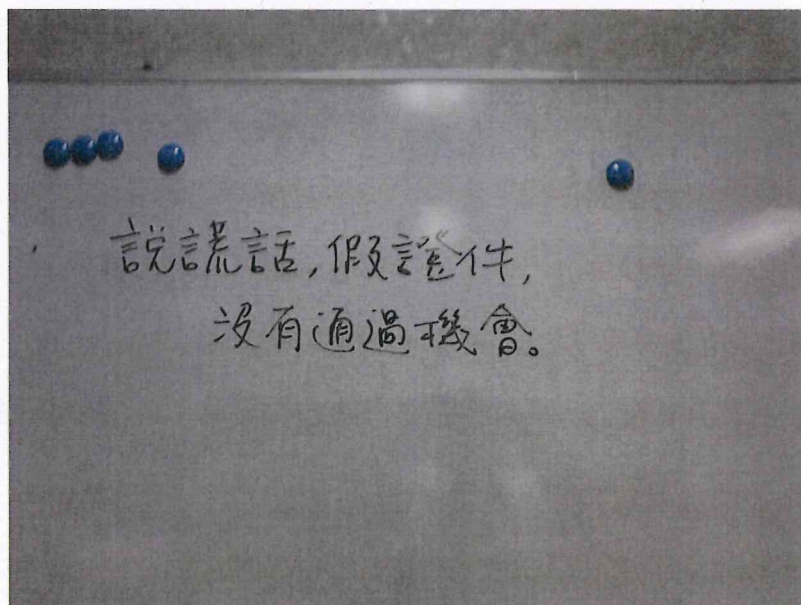 說謊話,假證件,
沒有通過機會。